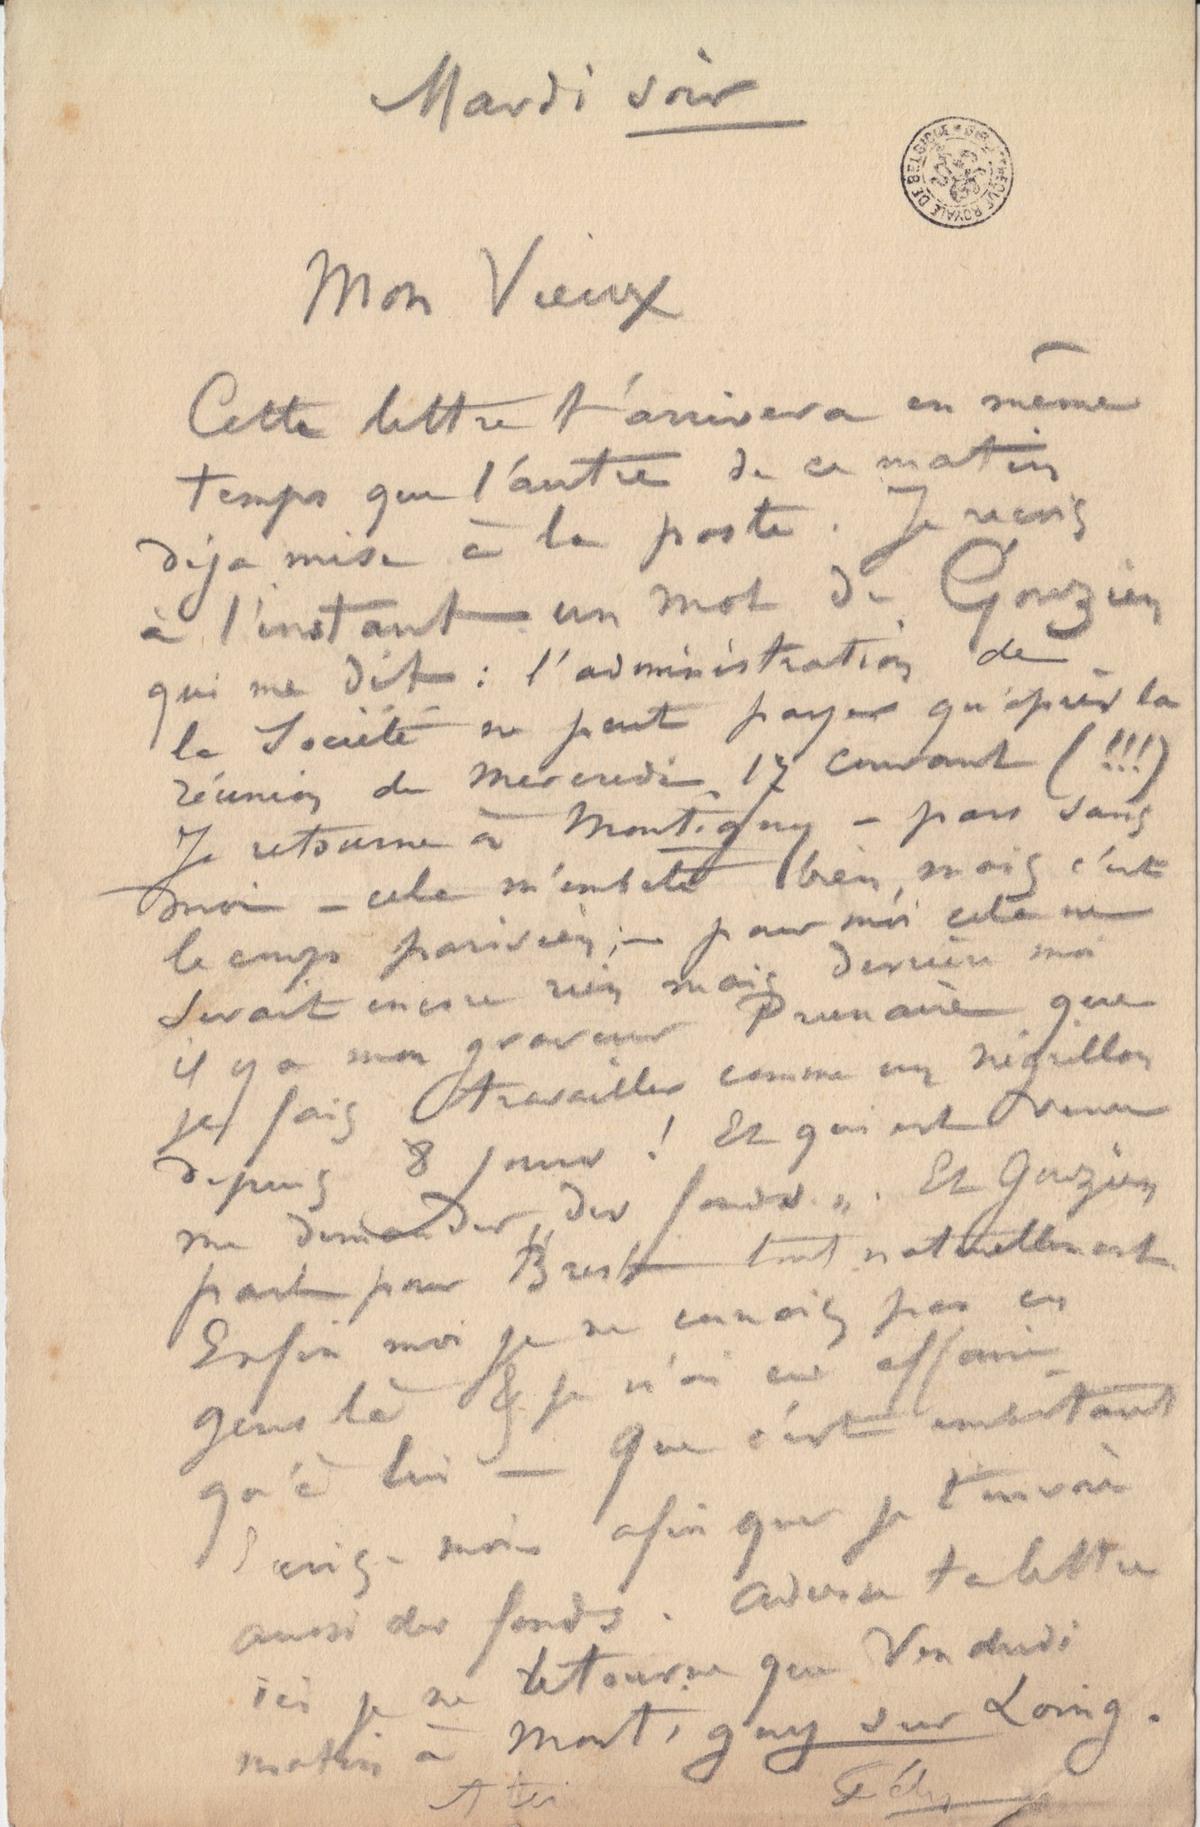 Mardi soir
BIBLIOTHÈQUE ROYALE DE BELGIQUE
Mon Vieux
Cette lettre t'arrivera en même
temps que l'autre de ce matin
déja mise à la poste. Je reçois
à l'instant un mot de Gouzien
qui me dit : l'administration de
la Société ne peut payer qu'après la
réunion du mercredi 17 courant (!!!)
Je retourne à Montigny – pars sans
moi – cela m'embete bien, mais c'est
le camp parisien ; – pour moi cela ne
serait encore rien mais derrière moi
il y a mon graveur Prunaire que
je fais travailler comme un négrillon
depuis 8 jours ! Et qui est venu
me demander „des fonds". Et Gouzien
part pour Brest tout naturellement
Enfin moi je ne connais pas ces
gens là & je n'ai eu affaire
qu'à lui — que c'est embêtant
Ecris-moi afin que je t'envoie
aussi des fonds. Adresse ta lettre
ici je ne retourne que Vendredi
matin à Montigny sur Loing.
A toi
Fély